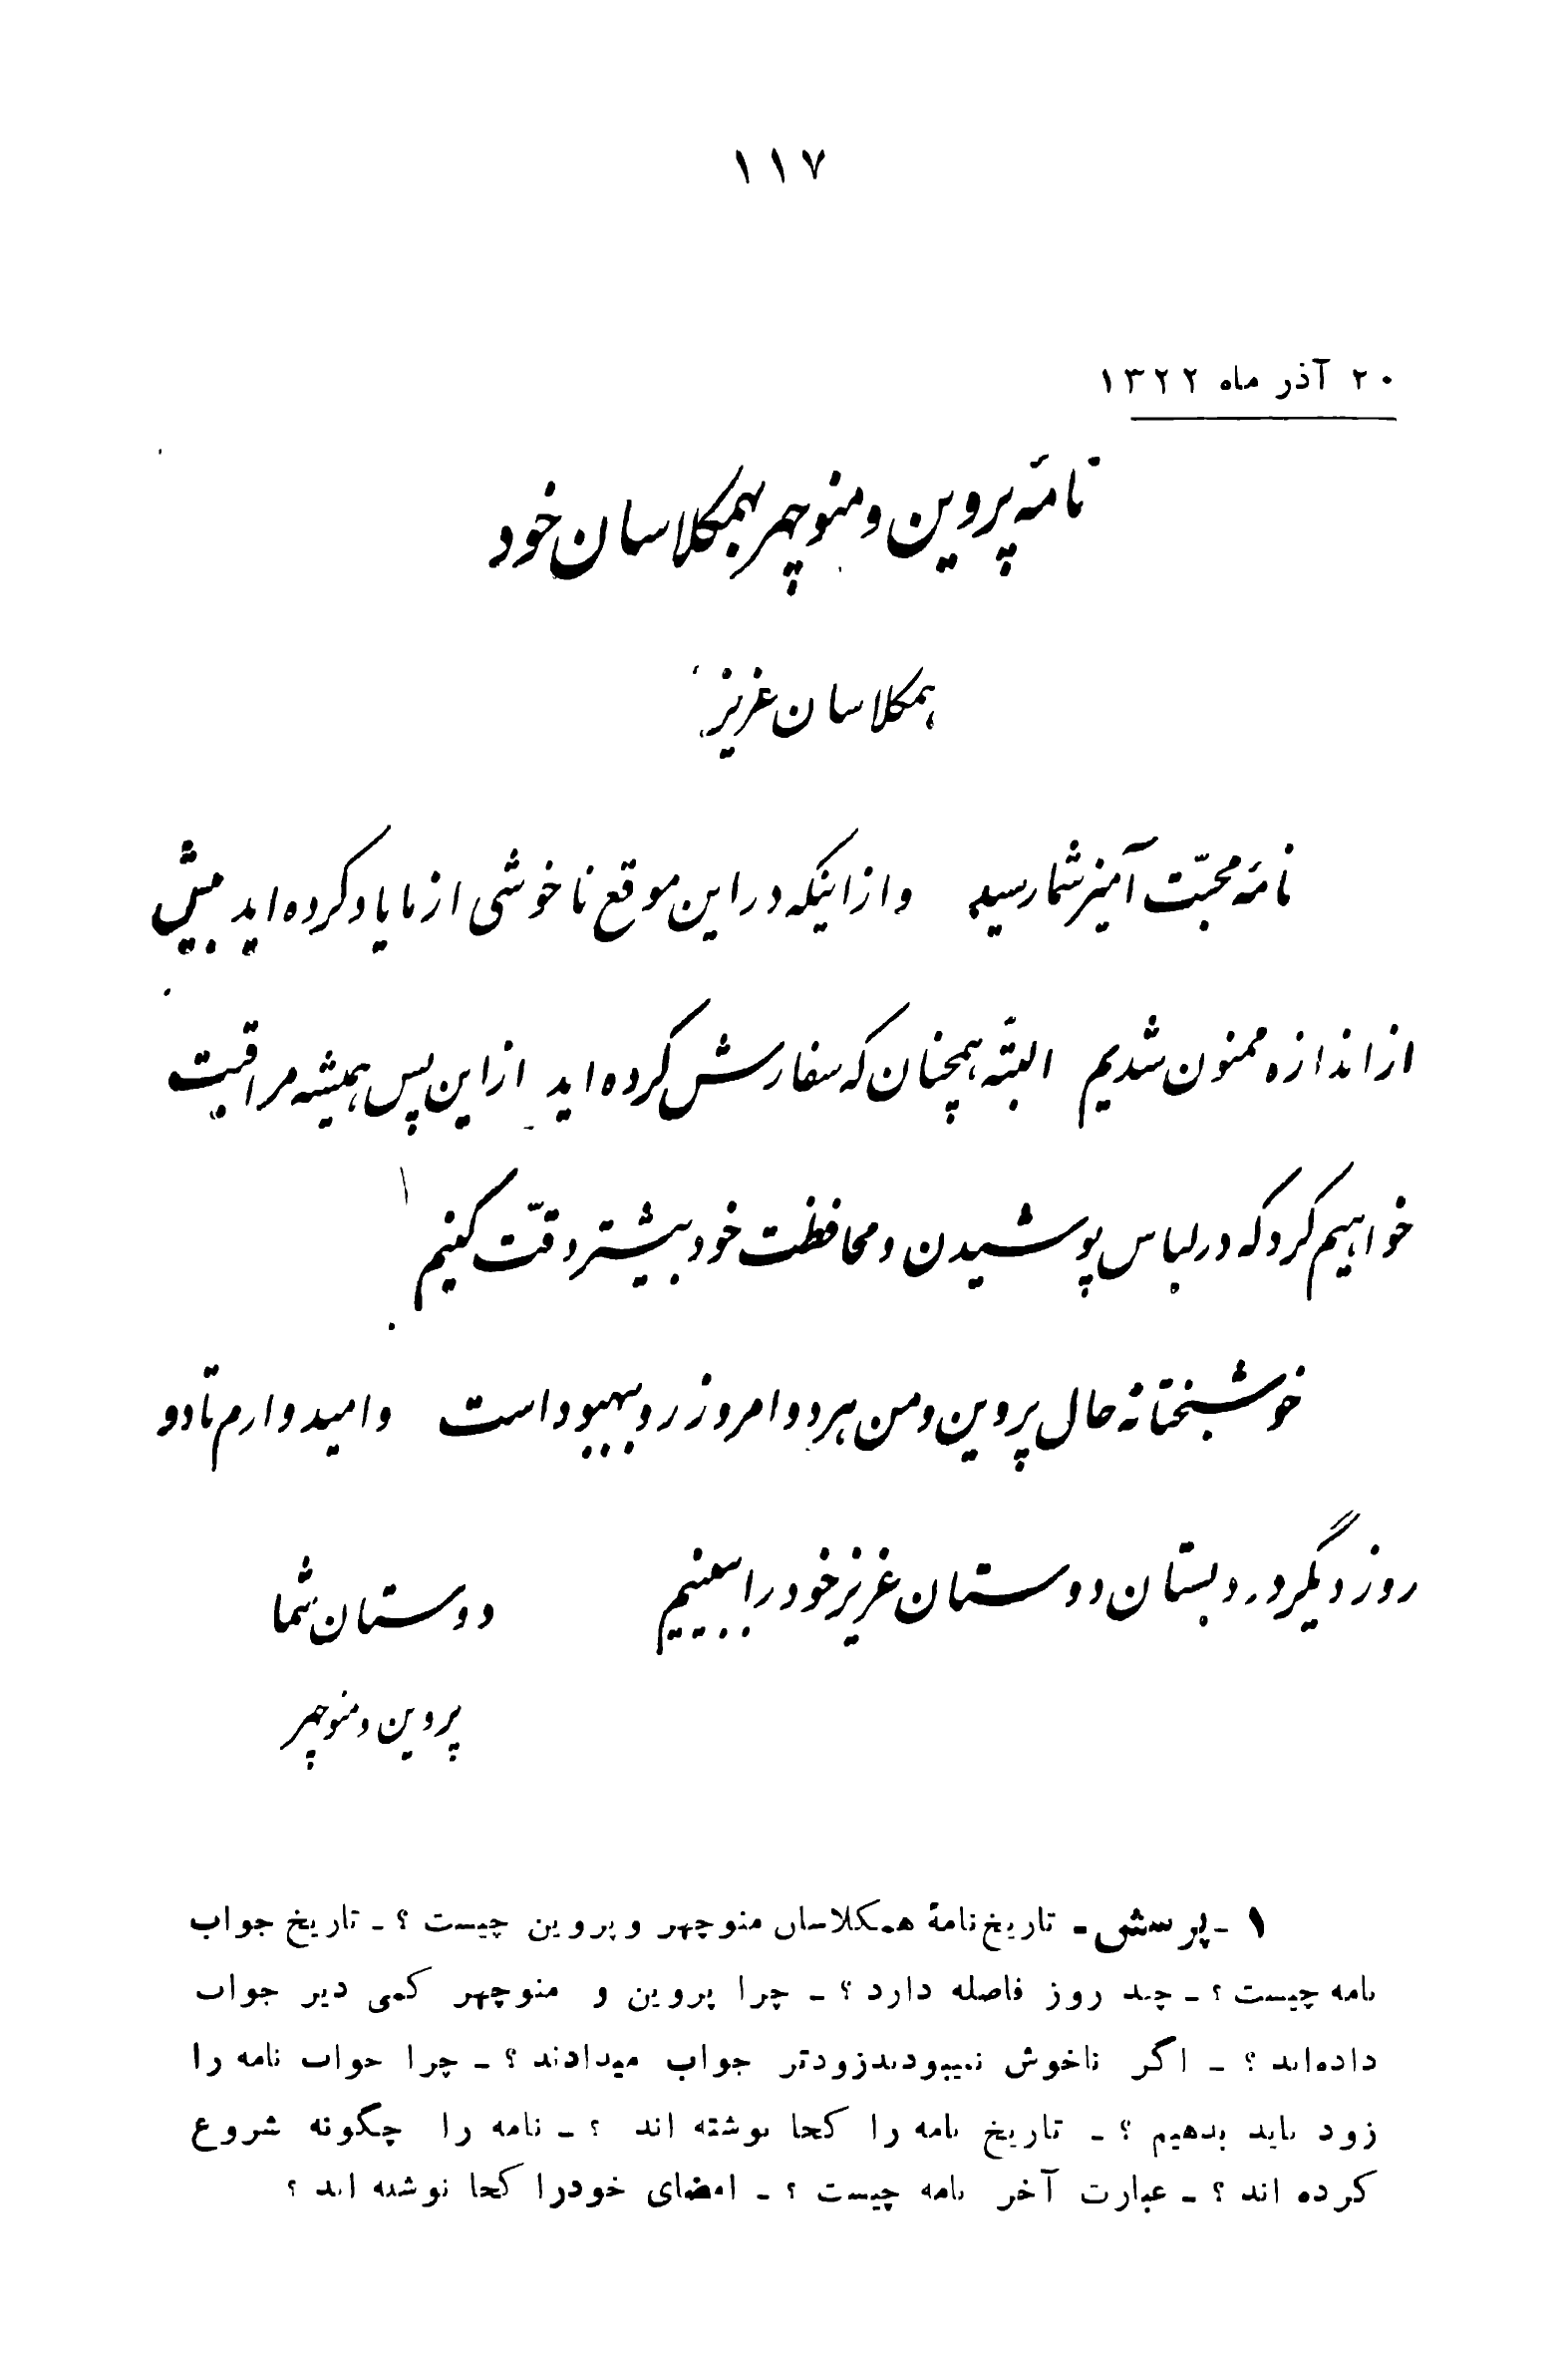 ۱۱۷
۲۰ آذر ماه ۱۳۲۲
نامهٔ پروین و منوچهر بهمکلاسان خود
همکلاسان عزیز
نامهٔ محبّت آمیز شما رسید و از اینکه در این موقع ناخوشی از ما یاد کرده‌اید بیش
از اندازه ممنون شدیم البتّه همچنان که سفارش کرده‌اید از این پس همیشه مراقبت
خواهیم کرد که در لباس پوشیدن و محافظت خود بیشتر دقّت کنیم
خوشبختانه حال پروین و من هر دو امروز رو ببهبود است و امیدوارم تا دو
روز دیگر در دبستان دوستان عزیز خود را ببینیم دوستان شما
پروین و منوچهر
۱ ـ پرسش ـ تاریخ نامهٔ همکلاسان منوچهر و پروین چیست ؟ ـ تاریخ جواب
نامه چیست ؟ ـ چند روز فاصله دارد ؟ ـ چرا پروین و منوچهر کمی دیر جواب
داده‌اند ؟ ـ اگر ناخوش نمیبودند زودتر جواب میدادند ؟ ـ چرا جواب نامه را
زود باید بدهیم ؟ ـ تاریخ نامه را کجا نوشته اند ؟ ـ نامه را چگونه شروع
کرده اند ؟ ـ عبارت آخر نامه چیست ؟ ـ امضای خود را کجا نوشته اند ؟